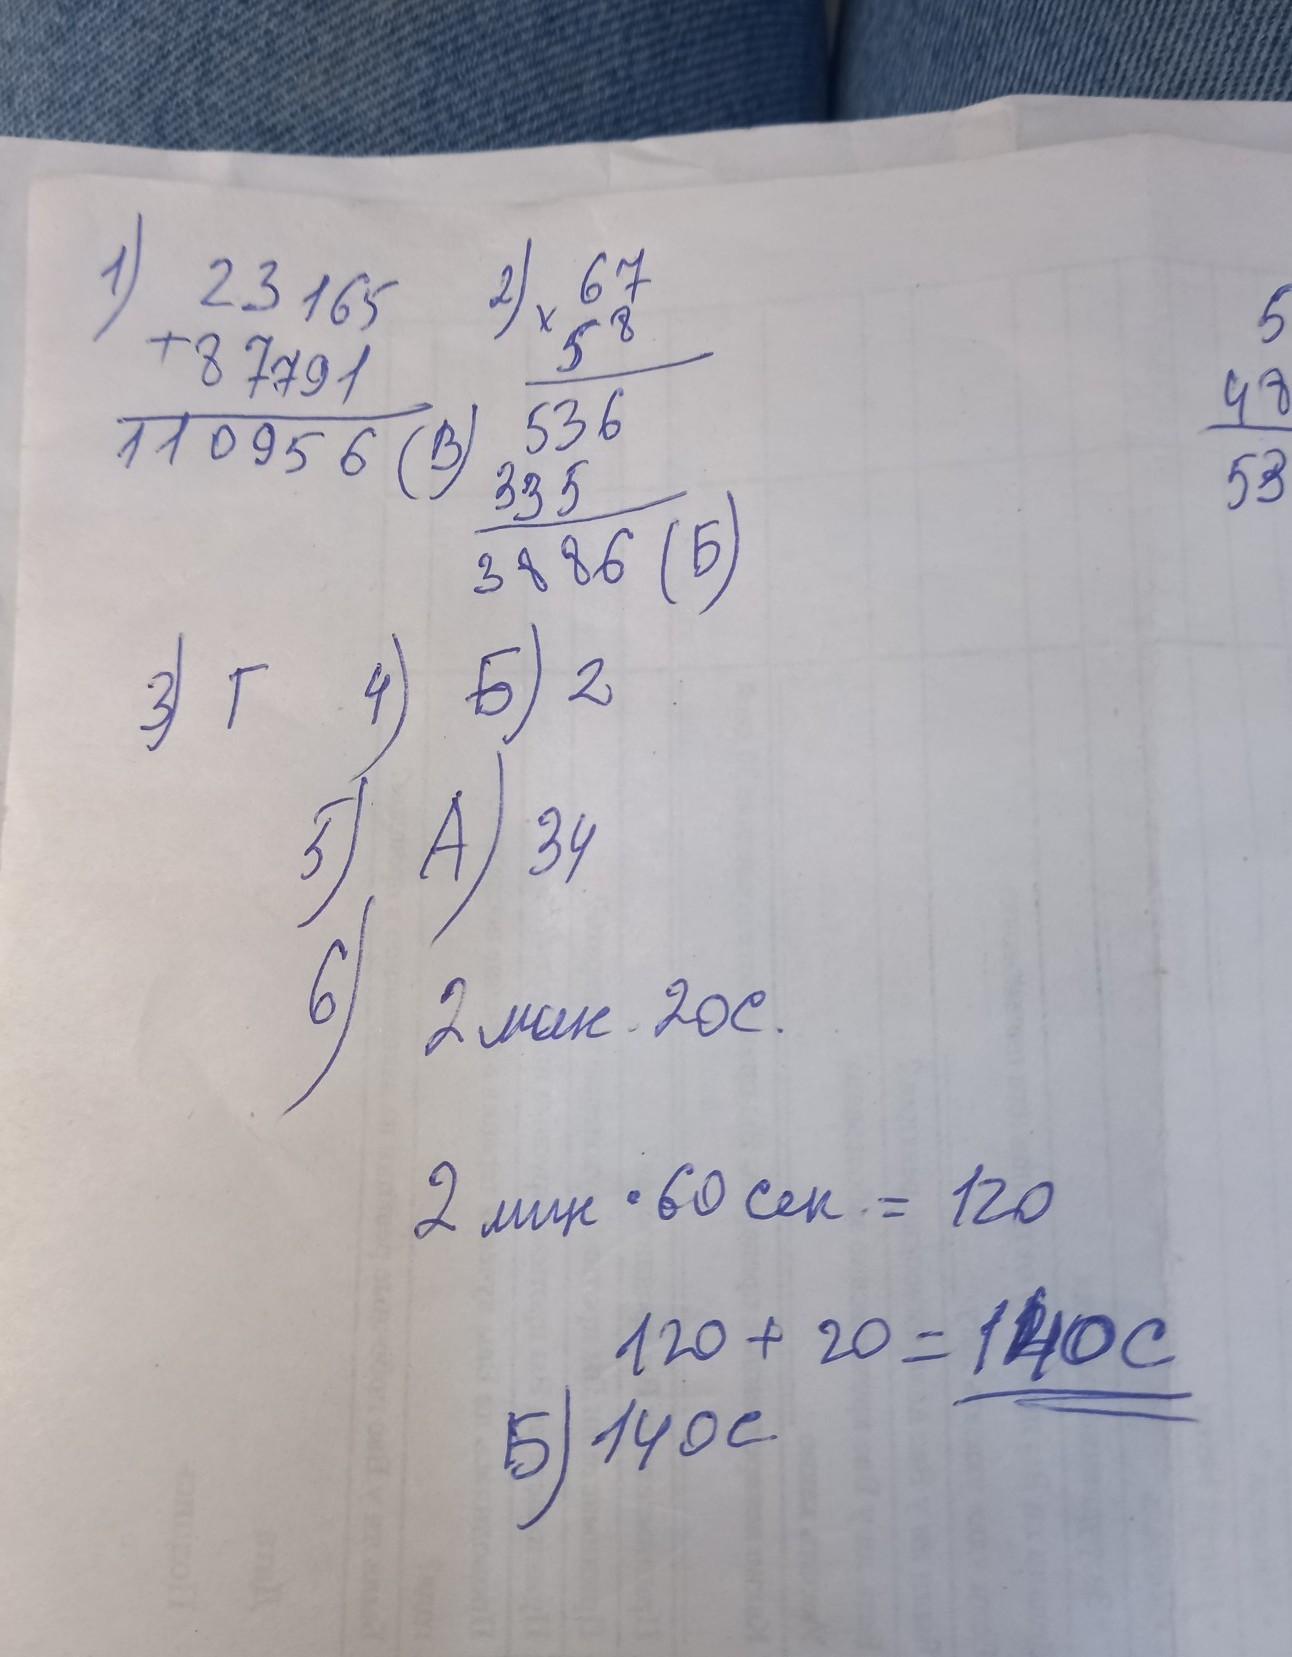 1) 23165
+87791
110956 (В)
2) × 67
58
536
335
3886 (Б)
5
48
53
3) Г 4) Б) 2
5) А) 34
6) 2 мин. 20с.
2 мин · 60 сек. = 120
120 + 20 = 140с
Б) 140с